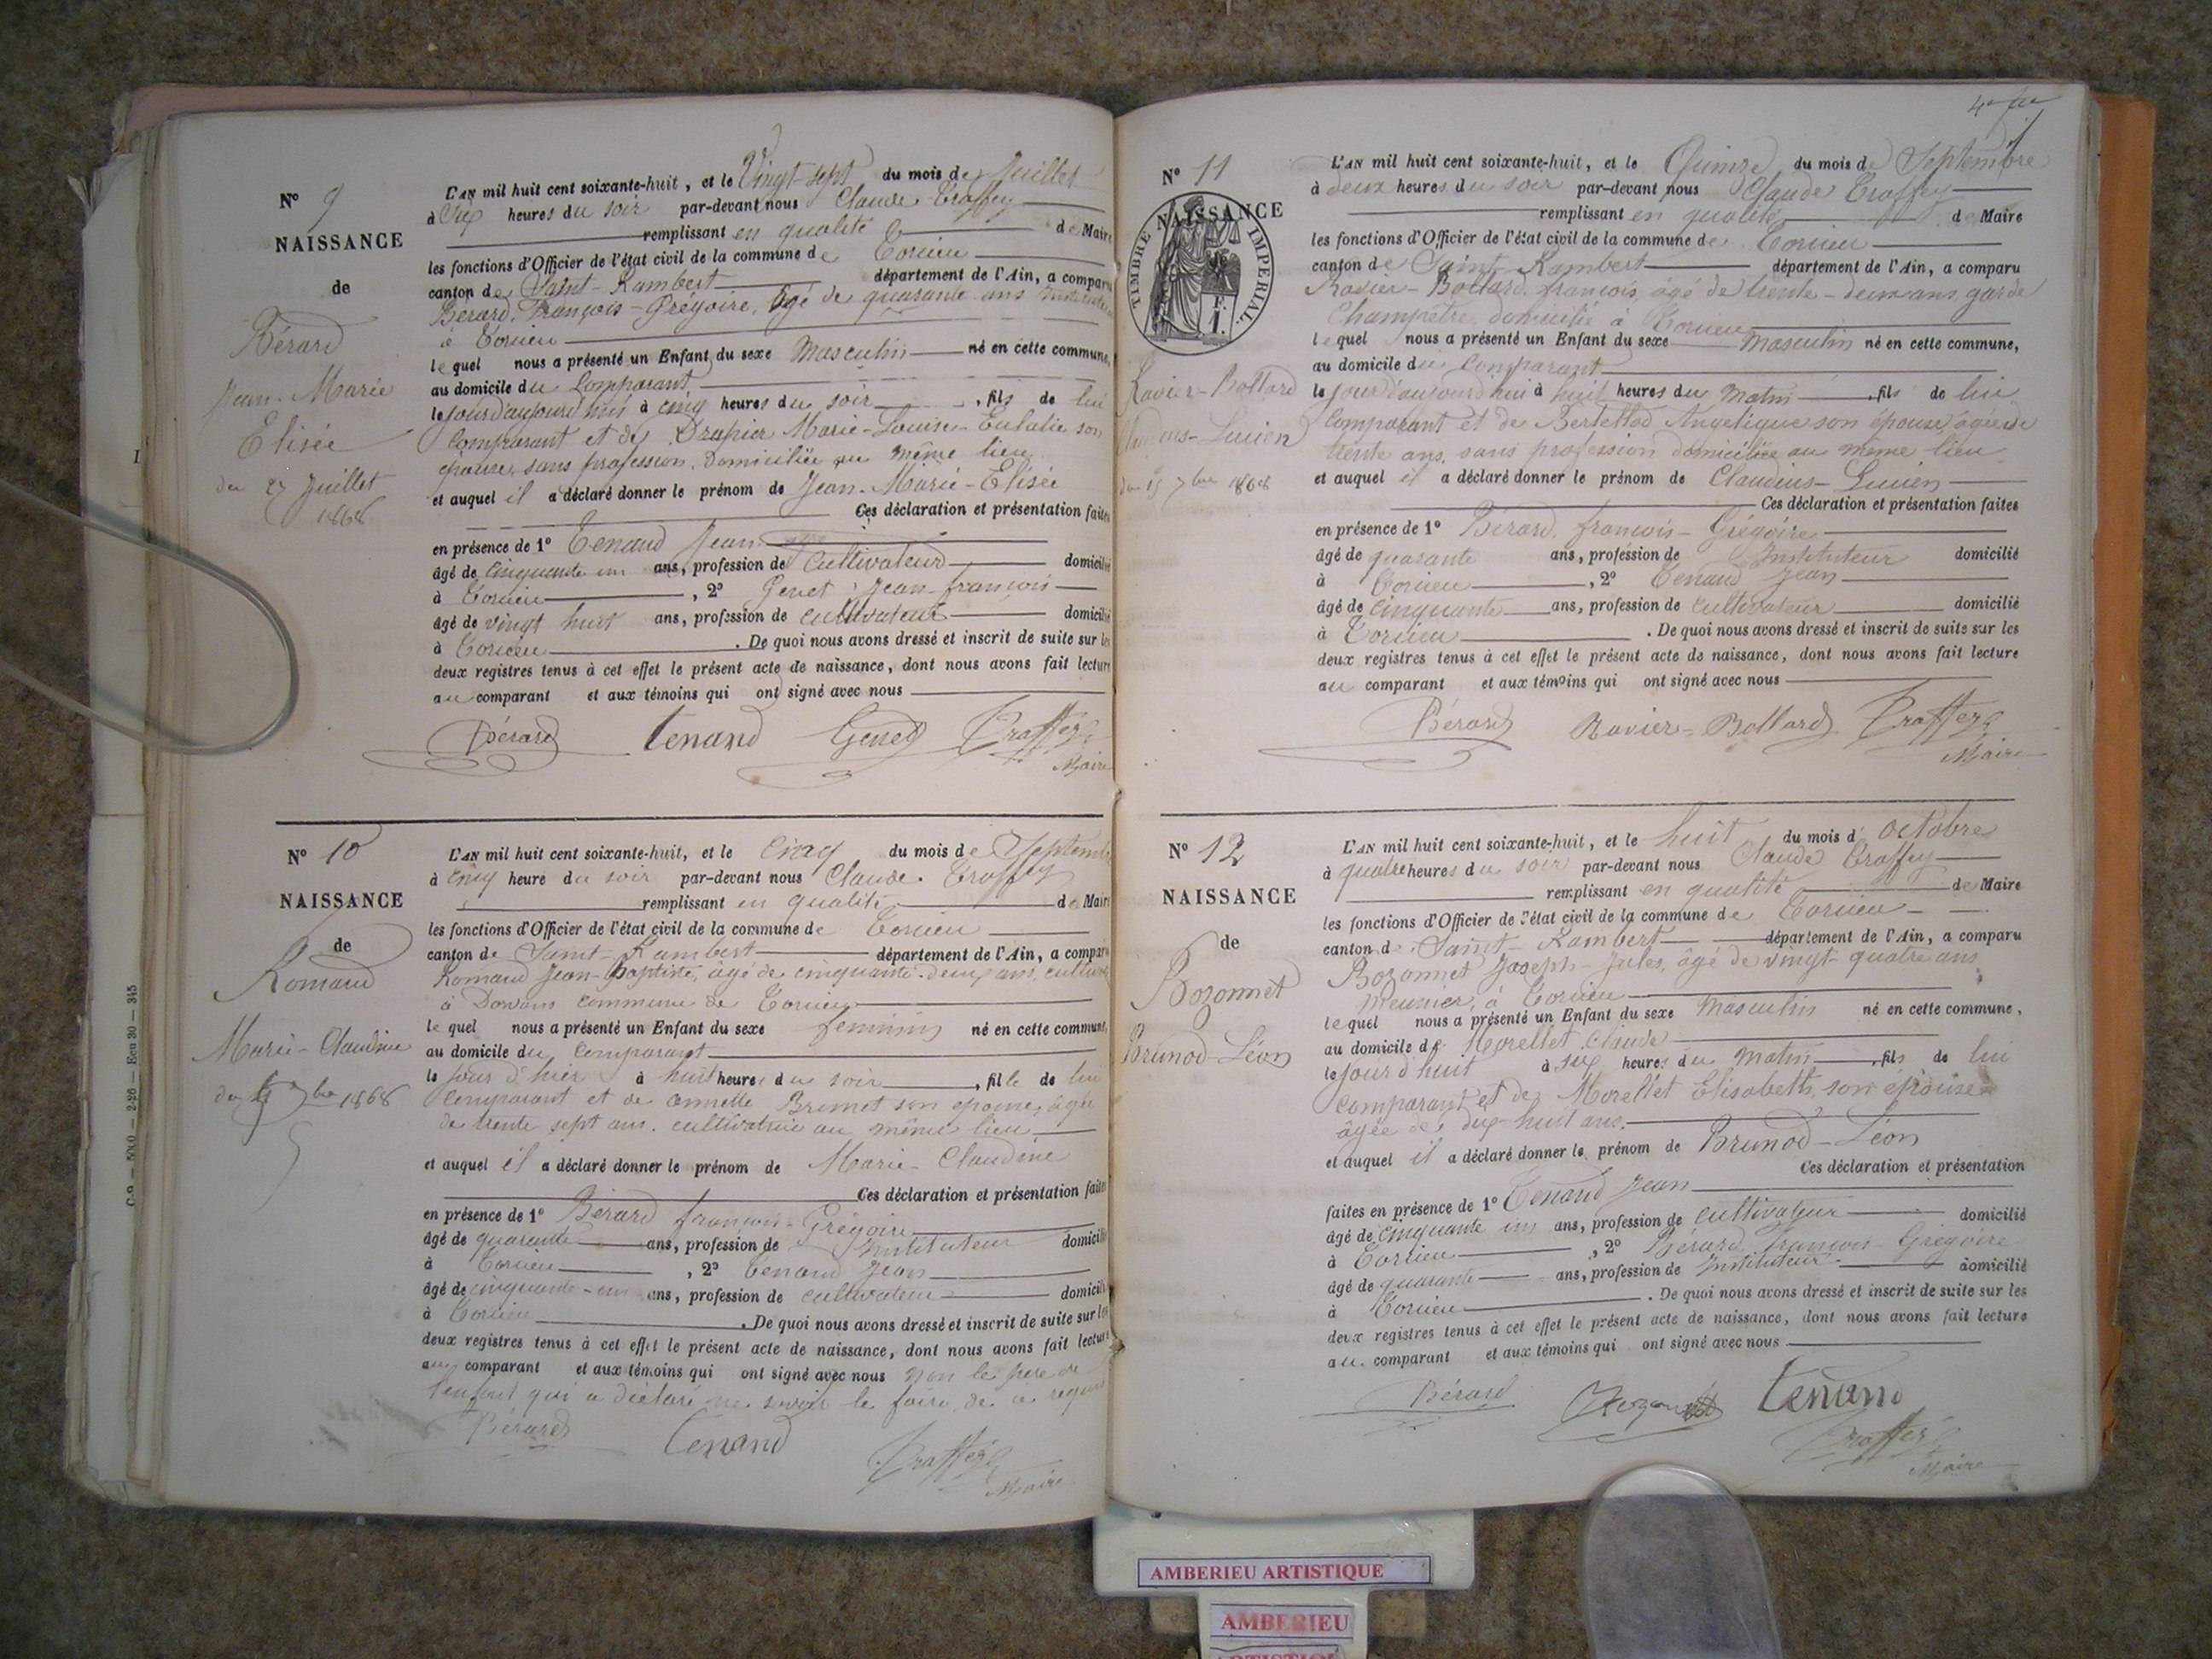 N° 9
NAISSANCE
de
Bérard
Jean-Marie
Elisée
du 27 Juillet
1868
L'AN mil huit cent soixante-huit, et le Vingt-sept du mois de Juillet
à Six heures du soir par-devant nous Claude Traffey
remplissant en qualité de Maire
les fonctions d'Officier de l'état civil de la commune de Torcieu
canton de Saint-Rambert département de l'Ain, a comparu
Bérard, François-Grégoire, âgé de quarante ans
à Torcieu
lequel nous a présenté un Enfant du sexe Masculin né en cette commune,
au domicile du Comparant
le jour d'aujourd'hui à cinq heures du soir, fils de lui
Comparant et de Drapier Marie-Louise-Eulalie son
épouse, sans profession, Domiciliée au même lieu
et auquel il a déclaré donner le prénom de Jean-Marie-Elisée
Ces déclaration et présentation faites
en présence de 1° Tenand Jean
âgé de cinquante un ans, profession de Cultivateur domicilié
à Torcieu, 2° Genet Jean-françois
âgé de vingt huit ans, profession de cultivateur domicilié
à Torcieu. De quoi nous avons dressé et inscrit de suite sur les
deux registres tenus à cet effet le présent acte de naissance, dont nous avons fait lecture
au comparant et aux témoins qui ont signé avec nous
Bérard Tenand Genet Traffey
Maire
N° 10
NAISSANCE
de
Romand
Marie-Claudine
du 4 7bre 1868
L'AN mil huit cent soixante-huit, et le Cinq du mois de Septembre
à cinq heure du soir par-devant nous Claude Traffey
remplissant en qualité de Maire
les fonctions d'Officier de l'état civil de la commune de Torcieu
canton de Saint-Rambert département de l'Ain, a comparu
Romand Jean-Baptiste, âgé de cinquante-deux ans,
à Dorvans commune de Torcieu
lequel nous a présenté un Enfant du sexe feminin né en cette commune,
au domicile du Comparant
le jour d'hier à huit heures du soir, fille de lui
Comparant et de Brunet son épouse, âgée
de trente sept ans, cultivatrice au même lieu
et auquel il a déclaré donner le prénom de Marie-Claudine
Ces déclaration et présentation faites
en présence de 1° Bérard françois-Grégoire
âgé de quarante ans, profession de Instituteur domicilié
à Torcieu, 2° Tenand Jean
âgé de cinquante-un ans, profession de cultivateur domicilié
à Torcieu. De quoi nous avons dressé et inscrit de suite sur les
deux registres tenus à cet effet le présent acte de naissance, dont nous avons fait lecture
au comparant et aux témoins qui ont signé avec nous non le père de
l'enfant qui a déclaré ne savoir le faire, de ce requis
Bérard Tenand Traffey
Maire
C-9 — 5000 — 2-26 — Ecu 30 — 345
N° 11
NAISSANCE
TIMBRE IMPERIAL
Ravier-Bollard
Claudius-Lucien
du 15 7bre 1868
L'AN mil huit cent soixante-huit, et le Quinze du mois de Septembre
à deux heures du soir par-devant nous Claude Traffey
remplissant en qualité de Maire
les fonctions d'Officier de l'état civil de la commune de Torcieu
canton de Saint-Rambert département de l'Ain, a comparu
Ravier-Bollard, françois, âgé de trente-deux ans, garde
Champêtre domicilié à Torcieu
lequel nous a présenté un Enfant du sexe masculin né en cette commune,
au domicile du comparant
le jour d'aujourd'hui à huit heures du matin, fils de lui
Comparant et de Angélique son épouse âgée de
trente ans, sans profession domiciliée au même lieu
et auquel il a déclaré donner le prénom de Claudius-Lucien
Ces déclaration et présentation faites
en présence de 1° Bérard, françois-Grégoire
âgé de quarante ans, profession de Instituteur domicilié
à Torcieu, 2° Tenand Jean
âgé de cinquante ans, profession de cultivateur domicilié
à Torcieu. De quoi nous avons dressé et inscrit de suite sur les
deux registres tenus à cet effet le présent acte de naissance, dont nous avons fait lecture
au comparant et aux témoins qui ont signé avec nous
Bérard Ravier-Bollard Traffey
Maire
N° 12
NAISSANCE
de
Bozonnet
Brunod-Léon
L'AN mil huit cent soixante-huit, et le huit du mois d'octobre
à quatre heures du soir par-devant nous Claude Traffey
remplissant en qualité de Maire
les fonctions d'Officier de l'état civil de la commune de Torcieu
canton de Saint-Rambert département de l'Ain, a comparu
Bozonnet Joseph-Jules, âgé de vingt-quatre ans
Meunier, à Torcieu
lequel nous a présenté un Enfant du sexe Masculin né en cette commune,
au domicile de Morellet Claude
le jour d'huit à six heures du matin, fils de lui
comparant et de Morellet Elisabeth, son épouse
âgée de dix-huit ans.
et auquel il a déclaré donner le prénom de Brunod-Léon
Ces déclaration et présentation
faites en présence de 1° Tenand Jean
âgé de cinquante un ans, profession de cultivateur domicilié
à Torcieu, 2° Bérard, françois Grégoire
âgé de quarante ans, profession de Instituteur domicilié
à Torcieu. De quoi nous avons dressé et inscrit de suite sur les
deux registres tenus à cet effet le présent acte de naissance, dont nous avons fait lecture
au comparant et aux témoins qui ont signé avec nous
Bérard Bozonnet Tenand
Traffey
Maire
AMBERIEU ARTISTIQUE
AMBERIEU
ARTISTIQUE